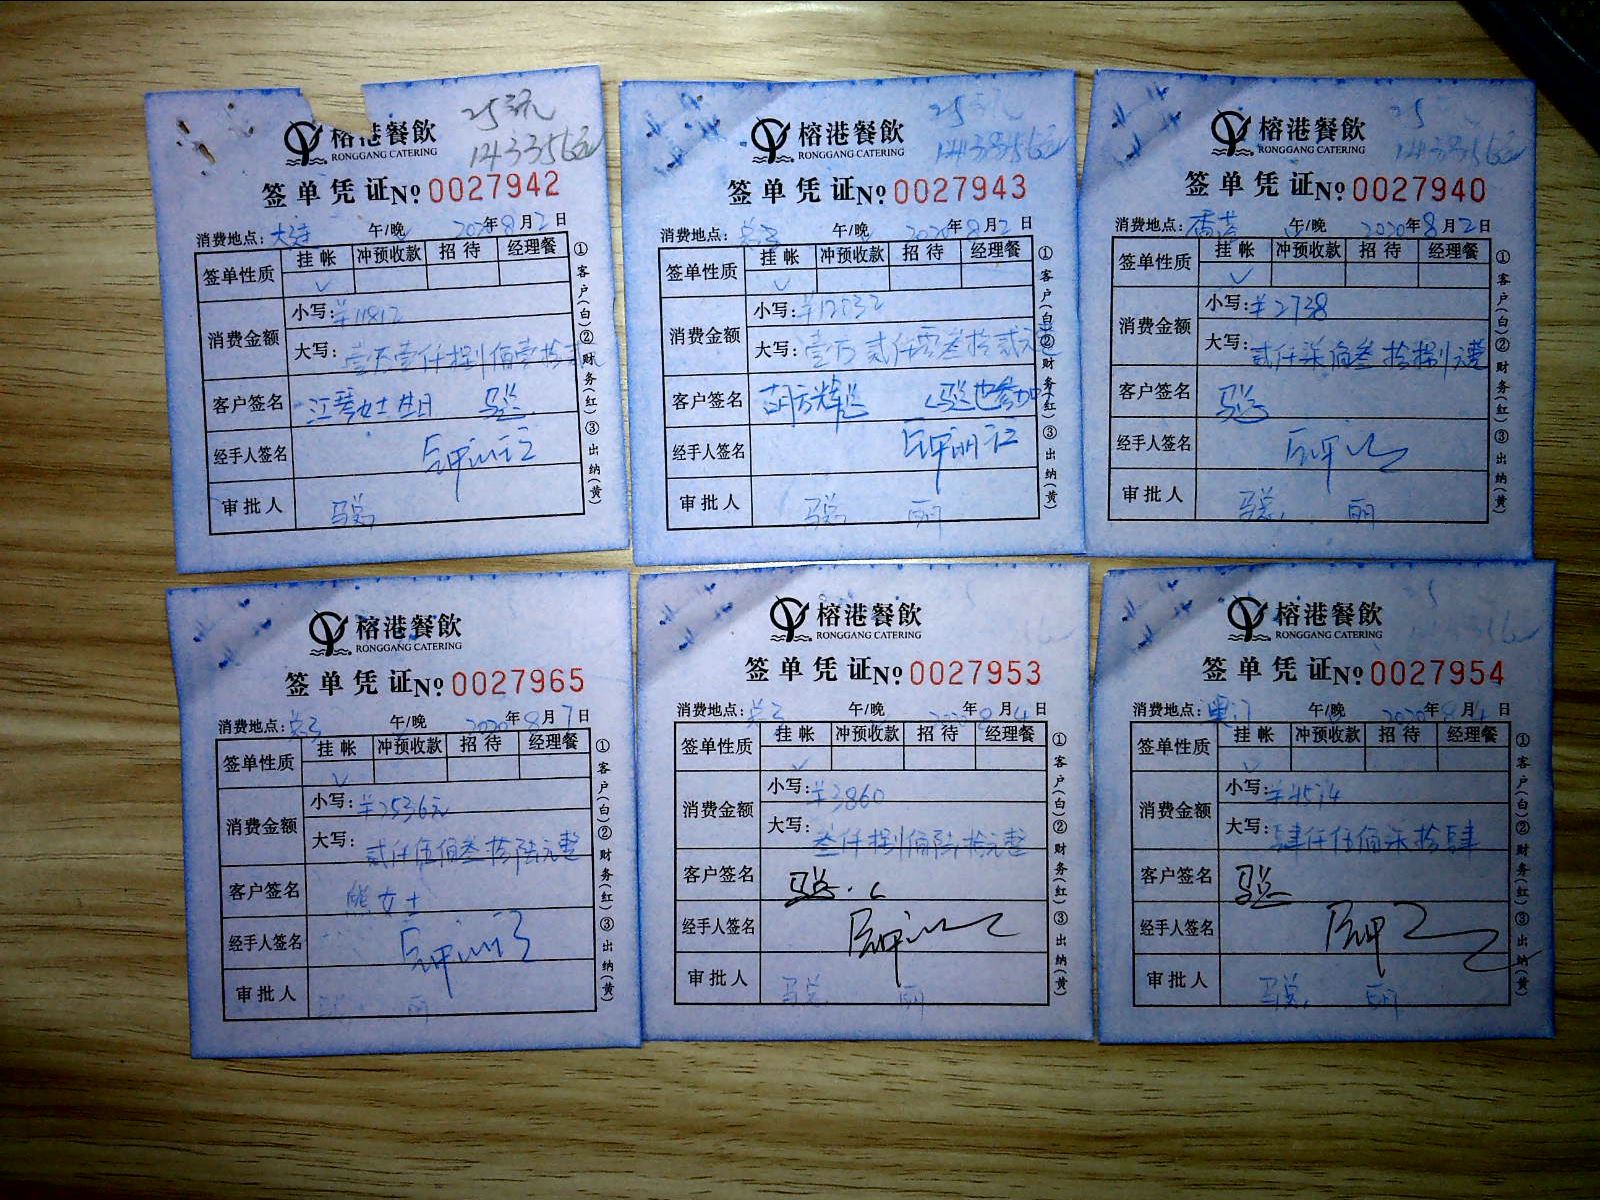 25张
榕港餐飲
RONGGANG CATERING
签单凭证No 0027942
消费地点: 午/晚 2020年8月2日
签单性质 挂帐 冲预收款 招待 经理餐
消费金额 小写: ¥11812
大写: 壹万壹仟捌佰壹拾贰
客户签名 江 女士生日
经手人签名
审批人
①客户(白)②财务(红)③出纳(黄)
25
榕港餐飲
RONGGANG CATERING
签单凭证No 0027943
消费地点: 午/晚 2020年8月2日
签单性质 挂帐 冲预收款 招待 经理餐
消费金额 小写: ¥12032
大写: 壹万贰仟零叁拾贰元
客户签名
经手人签名
审批人 丽
①客户(白)②财务(红)③出纳(黄)
25
榕港餐飲
RONGGANG CATERING
签单凭证No 0027940
消费地点: 香港 午/晚 2020年8月2日
签单性质 挂帐 冲预收款 招待 经理餐
消费金额 小写: ¥2738
大写: 贰仟柒佰叁拾捌元整
客户签名
经手人签名
审批人 丽
①客户(白)②财务(红)③出纳(黄)
榕港餐飲
RONGGANG CATERING
签单凭证No 0027965
消费地点: 午/晚 2020年8月7日
签单性质 挂帐 冲预收款 招待 经理餐
消费金额 小写: ¥2536元
大写: 贰仟伍佰叁拾陆元整
客户签名 熊女士
经手人签名
审批人 丽
①客户(白)②财务(红)③出纳(黄)
榕港餐飲
RONGGANG CATERING
签单凭证No 0027953
消费地点: 午/晚 2020年8月4日
签单性质 挂帐 冲预收款 招待 经理餐
消费金额 小写: ¥3860
大写: 叁仟捌佰陆拾元整
客户签名
经手人签名
审批人 丽
①客户(白)②财务(红)③出纳(黄)
榕港餐飲
RONGGANG CATERING
签单凭证No 0027954
消费地点: 澳门 午/晚 2020年8月4日
签单性质 挂帐 冲预收款 招待 经理餐
消费金额 小写: ¥4574
大写: 肆仟伍佰柒拾肆
客户签名
经手人签名
审批人 丽
①客户(白)②财务(红)③出纳(黄)